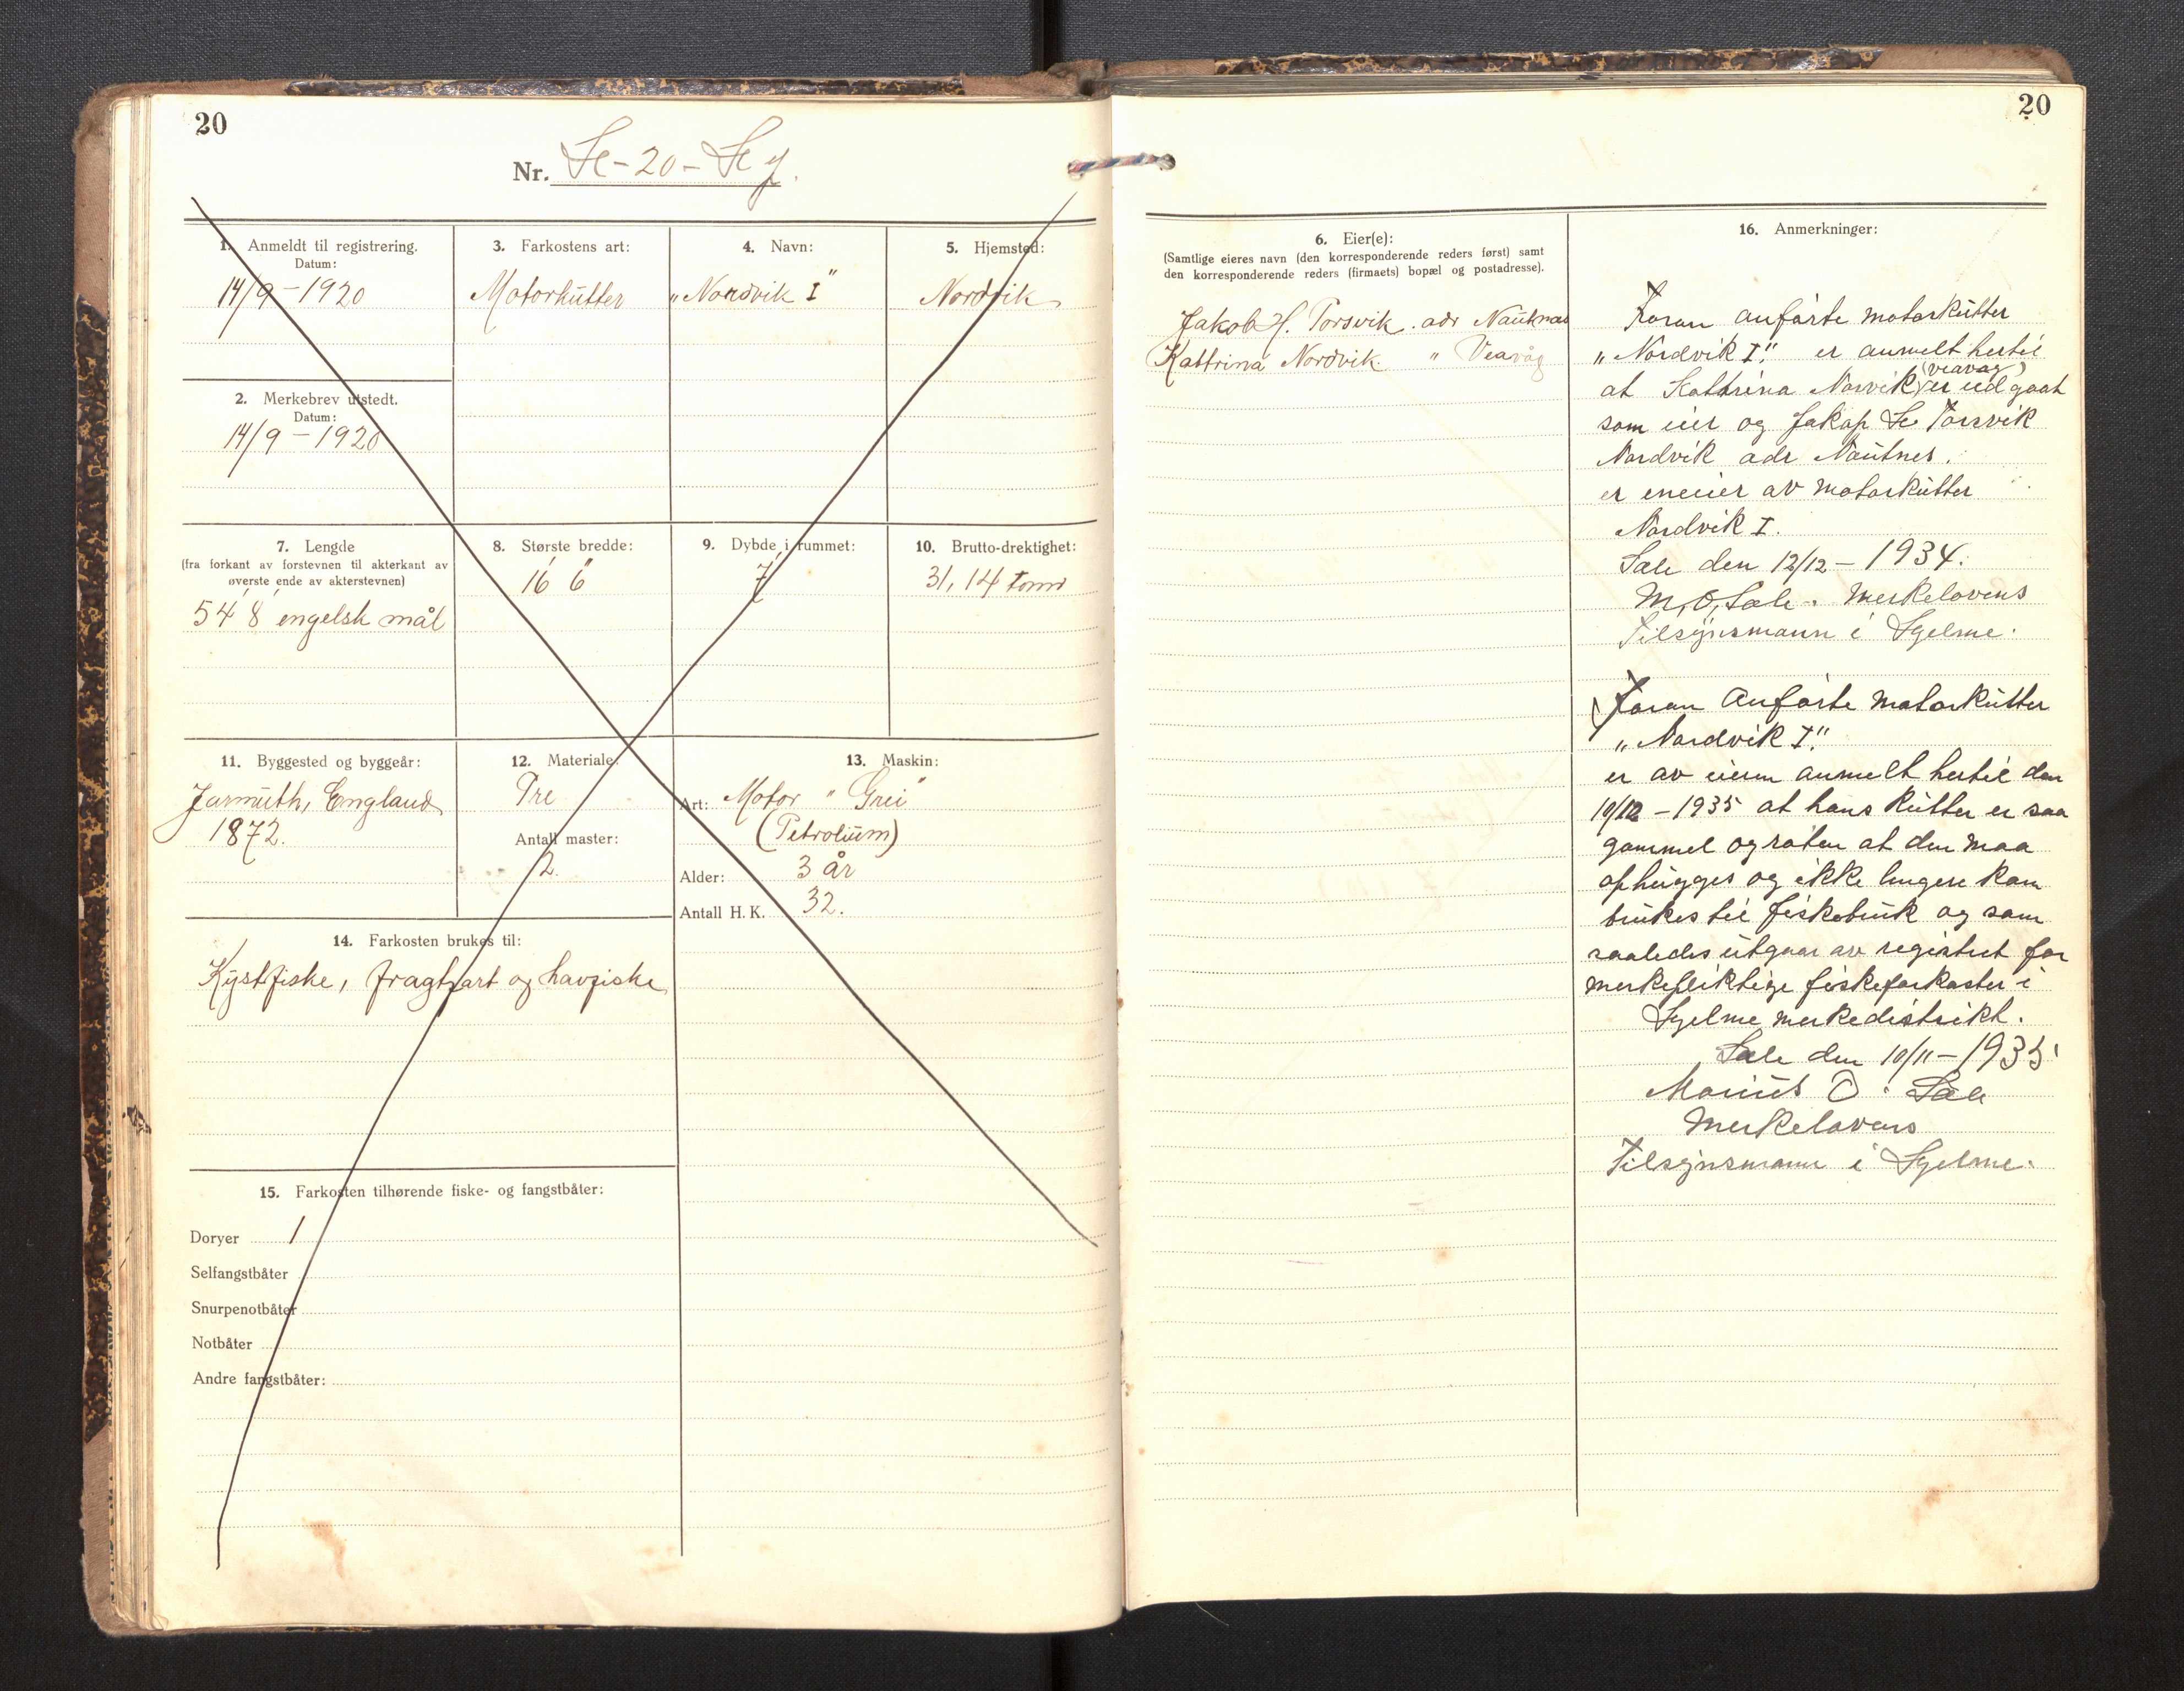 20
Nr. H-20-Hj.
1. Anmeldt til registrering.
Datum:
14/9-1920
2. Merkebrev utstedt.
Datum:
14/9-1920
3. Farkostens art:
Motorkutter
4. Navn:
„Nordvik I"
5. Hjemsted:
Nordvik
7. Lengde
(fra forkant av forstevnen til akterkant av
øverste ende av akterstevnen)
54' 8" engelsk mål
8. Største bredde:
16' 6"
9. Dybde i rummet:
7'
10. Brutto-drektighet:
31,14 tonn
11. Byggested og byggeår:
Jarmuth, England
1872.
12. Materiale:
Tre
Antall master:
2.
13. Maskin:
Art: Motor "Grei"
(Petrolium)
Alder: 3 år
Antall H. K. 32.
14. Farkosten brukes til:
Kystfiske, fragtfart og havfiske
15. Farkosten tilhørende fiske- og fangstbåter:
Doryer 1
Selfangstbåter
Snurpenotbåter
Notbåter
Andre fangstbåter:
20
6. Eier(e):
(Samtlige eieres navn (den korresponderende reders først) samt
den korresponderende reders (firmaets) bopæl og postadresse).
Jakob H. Torsvik. adr Nautnes
Kattrina Nordvik " Veavåg
16. Anmerkninger:
Foran anførte motorkutter
„Nordvik I." er anmelt hertil
at Kathrina Norvik (veavag) er udgaat
som eier og Jakop H Torsvik
Nordvik adr Nautnes.
er eneier av motorkutter
Nordvik I.
Sæle den 12/12-1934.
M, O, Sæle. Merkelovens
Tilsynsmann i Hjelme.
Foran Anførte motorkutter
„Nordvik I."
er av eieren anmelt hertil den
10/12-1935 at hans kutter er saa
gammel og råten at den maa
ophugges og ikke lengere kan
brukes til fiskebruk og som
saaledes utgaar av registret for
merkepliktige fiskefarkoster i
Hjelme merkedistrikt.
Sæle den 10/11-1935
Marius O. Sæle
Merkelovens
Tilsynsmann i Hjelme.